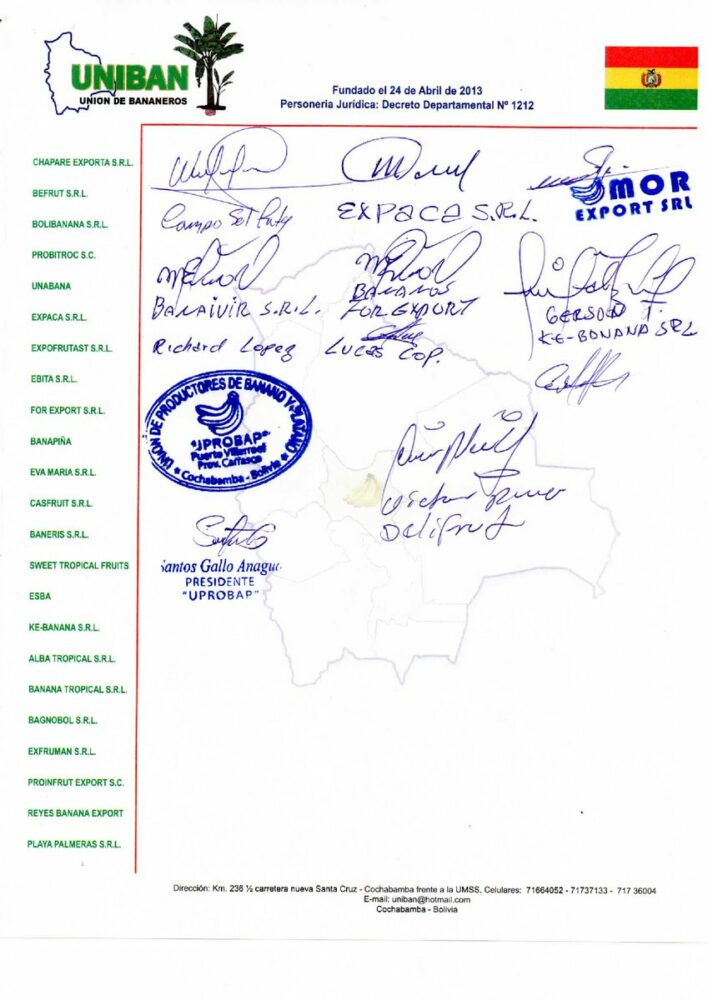 UNIBAN
UNION DE BANANEROS
Fundado el 24 de Abril de 2013
Personeria Jurídica: Decreto Departamental Nº 1212
CHAPARE EXPORTA S.R.L.
BEFRUT S.R.L.
BOLIBANANA S.R.L.
PROBITROC S.C.
UNABANA
EXPACA S.R.L.
EXPOFRUTAST S.R.L.
EBITA S.R.L.
FOR EXPORT S.R.L.
BANAPIÑA
EVA MARIA S.R.L.
CASFRUIT S.R.L.
BANERIS S.R.L.
SWEET TROPICAL FRUITS
ESBA
KE-BANANA S.R.L.
ALBA TROPICAL S.R.L.
BANANA TROPICAL S.R.L.
BAGNOBOL S.R.L.
EXFRUMAN S.R.L.
PROINFRUT EXPORT S.C.
REYES BANANA EXPORT
PLAYA PALMERAS S.R.L.
Campo
EXPACA S.R.L.
MOR
EXPORT SRL
BANAIVIR S.R.L.
BANANOS
FOR EXPORT
GERSON T.
KE-BONANA SRL
Richard Lopez
LUCAS COP.
UNION DE PRODUCTORES DE BANANO Y PLATANO
"UPROBAP"
Puerto Villarroel
Prov. Carrasco
Cochabamba - Bolivia
Victor
Delifruz
Santos Gallo Anagua
PRESIDENTE
"UPROBAP"
Dirección: Km. 236 ½ carretera nueva Santa Cruz - Cochabamba frente a la UMSS, Celulares: 71664052 - 71737133 - 717 36004
E-mail: uniban@hotmail.com
Cochabamba - Bolivia